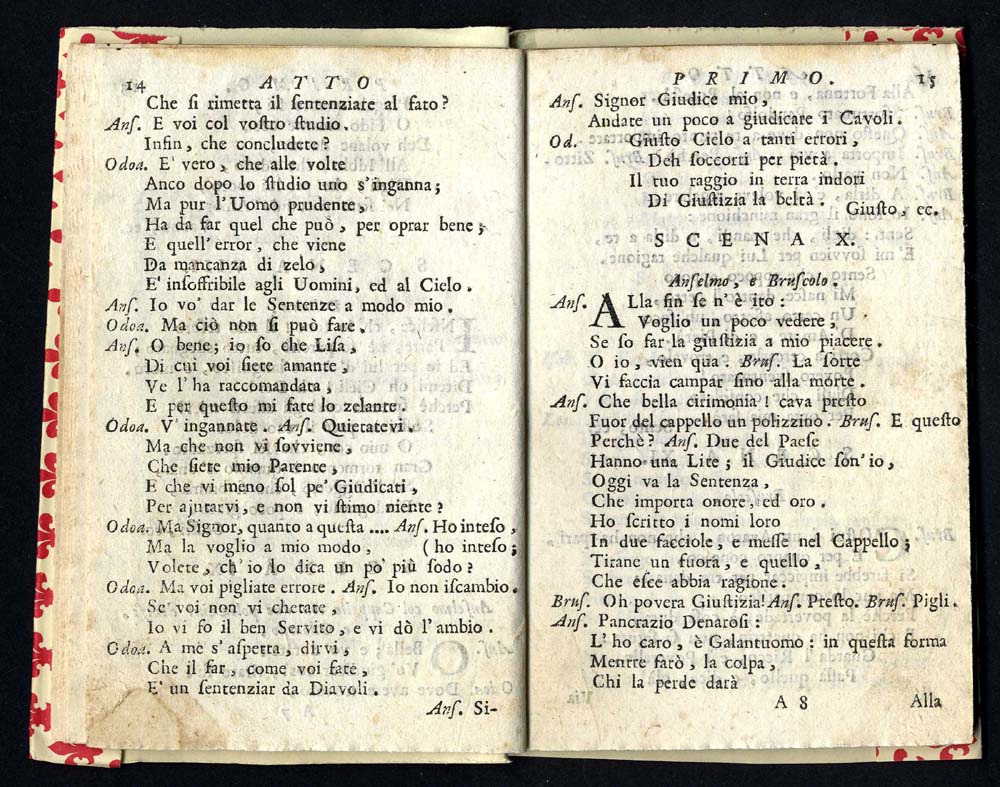 14 ATTO
Che si rimetta il sentenziare al fato?
Ans. E voi col vostro studio.
Infin, che concludete?
Odoa. E' vero, che alle volte
Anco dopo lo studio uno s'inganna;
Ma pur l'Uomo prudente,
Ha da far quel che può, per oprar bene;
E quell' error, che viene
Da mancanza di zelo,
E' insoffribile agli Uomini, ed al Cielo.
Ans. Io vo' dar le Sentenze a modo mio.
Odoa. Ma ciò non si può fare.
Ans. O bene; io so che Lisa,
Di cui voi siete amante,
Ve l'ha raccomandata,
E per questo mi fate lo zelante.
Odoa. V'ingannate. Ans. Quietatevi.
Ma che non vi sovviene,
Che siete mio Parente,
E che vi meno sol pe' Giudicati,
Per ajutarvi, e non vi stimo niente?
Odoa. Ma Signor, quanto a questa .... Ans. Ho inteso,
Ma la voglio a mio modo, (ho inteso;
Volete, ch'io lo dica un po' più sodo?
Odoa. Ma voi pigliate errore. Ans. Io non iscambio.
Se' voi non vi chetate,
Io vi fo il ben Servito, e vi dò l'ambio.
Odoa. A me s'aspetta, dirvi,
Che il far, come voi fate,
E' un sentenziar da Diavoli.
Ans. Si-
PRIMO. 15
Ans. Signor Giudice mio,
Andate un poco a giudicare i Cavoli.
Od. Giusto Cielo a tanti errori,
Deh soccorri per pietà.
Il tuo raggio in terra indori
Di Giustizia la beltà.
Giusto, ec.
SCENA X.
Anselmo, e Bruscolo.
Ans. ALla fin se n'è ito:
Voglio un poco vedere,
Se so far la giustizia a mio piacere.
O io, vien qua. Brus. La sorte
Vi faccia campar sino alla morte.
Ans. Che bella cirimonia! cava presto
Fuor del cappello un polizzino. Brus. E questo
Perchè? Ans. Due del Paese
Hanno una Lite; il Giudice son'io,
Oggi va la Sentenza,
Che importa onore, ed oro.
Ho scritto i nomi loro
In due facciole, e messe nel Cappello;
Tirane un fuora, e quello,
Che esce abbia ragione.
Brus. Oh povera Giustizia! Ans. Presto. Brus. Pigli.
Ans. Pancrazio Denarosi:
L'ho caro, è Galantuomo: in questa forma
Mentre farò, la colpa,
Chi la perde darà
A 8 Alla